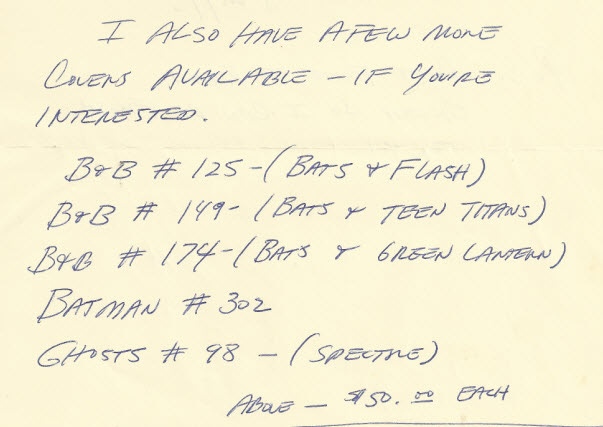 I ALSO HAVE A FEW MORE
COVERS AVAILABLE - IF YOU'RE
INTERESTED.
B&B # 125 - (BATS & FLASH)
B&B # 149 - (BATS & TEEN TITANS)
B&B # 174 - (BATS & GREEN LANTERN)
BATMAN # 302
GHOSTS # 98 - (SPECTRE)
ABOVE - $50.00 EACH